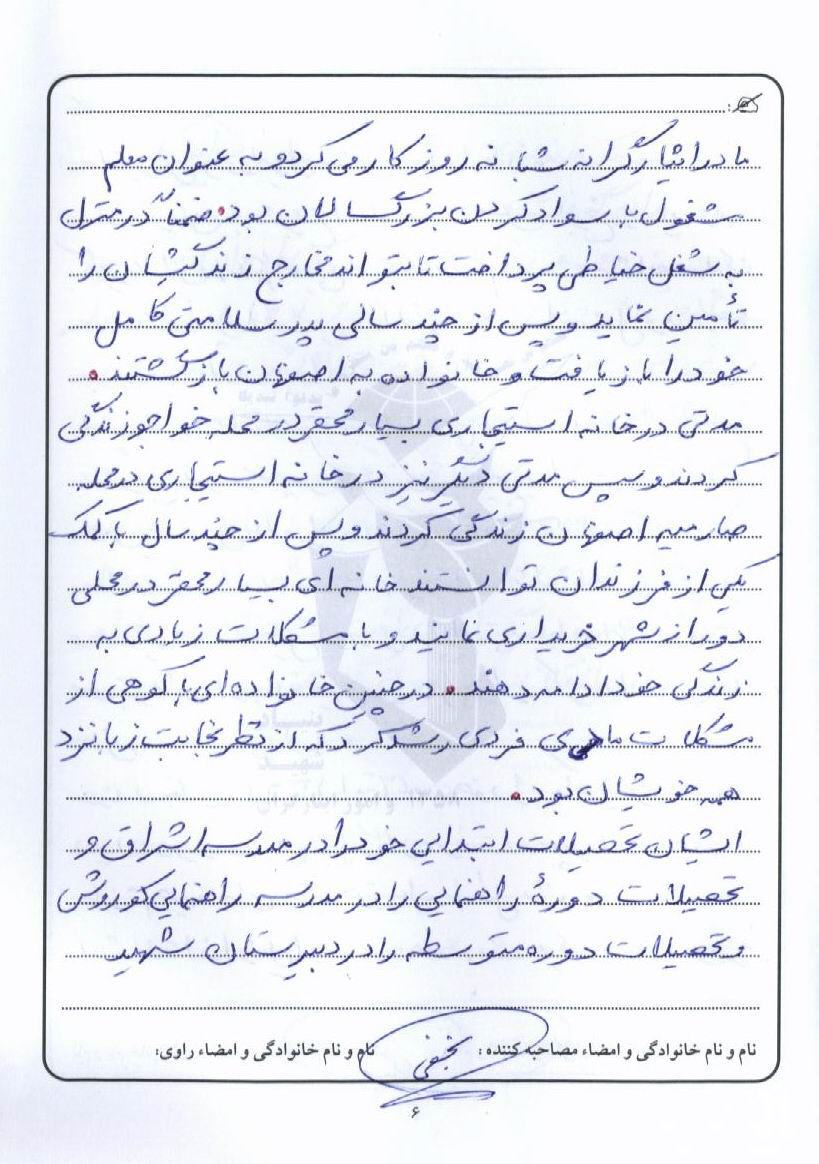 مادر ایثارگرانه شبانه روز کار می کرد و به عنوان معلم
مشغول با سواد کردن بزرگسالان بود. ضمناً در منزل
به شغل خیاطی پرداخت تا بتواند مخارج زندگیشان را
تأمین نماید و پس از چند سالی پدر سلامتی کامل
خود را باز یافت و خانواده به اصفهان بازگشتند.
مدتی در خانه استیجاری بسیار محقر در محله خواجو زندگی
کردند و سپس مدتی دیگر نیز در خانه استیجاری در محله
صارمیه اصفهان زندگی کردند و پس از چند سال با کمک
یکی از فرزندان توانستند خانه ای بسیار محقر در محلی
دور از شهر خریداری نمایند و با مشکلات زیادی به
زندگی خود ادامه دهند. در چنین خانواده ای با کوهی از
مشکلات مادی فردی رشد کرد که از نظر نجابت زبانزد
همه خویشان بود.
ایشان تحصیلات ابتدایی خود را در مدرسه اشراق و
تحصیلات دورهٔ راهنمایی را در مدرسه راهنمایی کوروش
و تحصیلات دوره متوسطه را در دبیرستان شهید
نام و نام خانوادگی و امضاء مصاحبه کننده: نجفی نام و نام خانوادگی و امضاء راوی:
۶